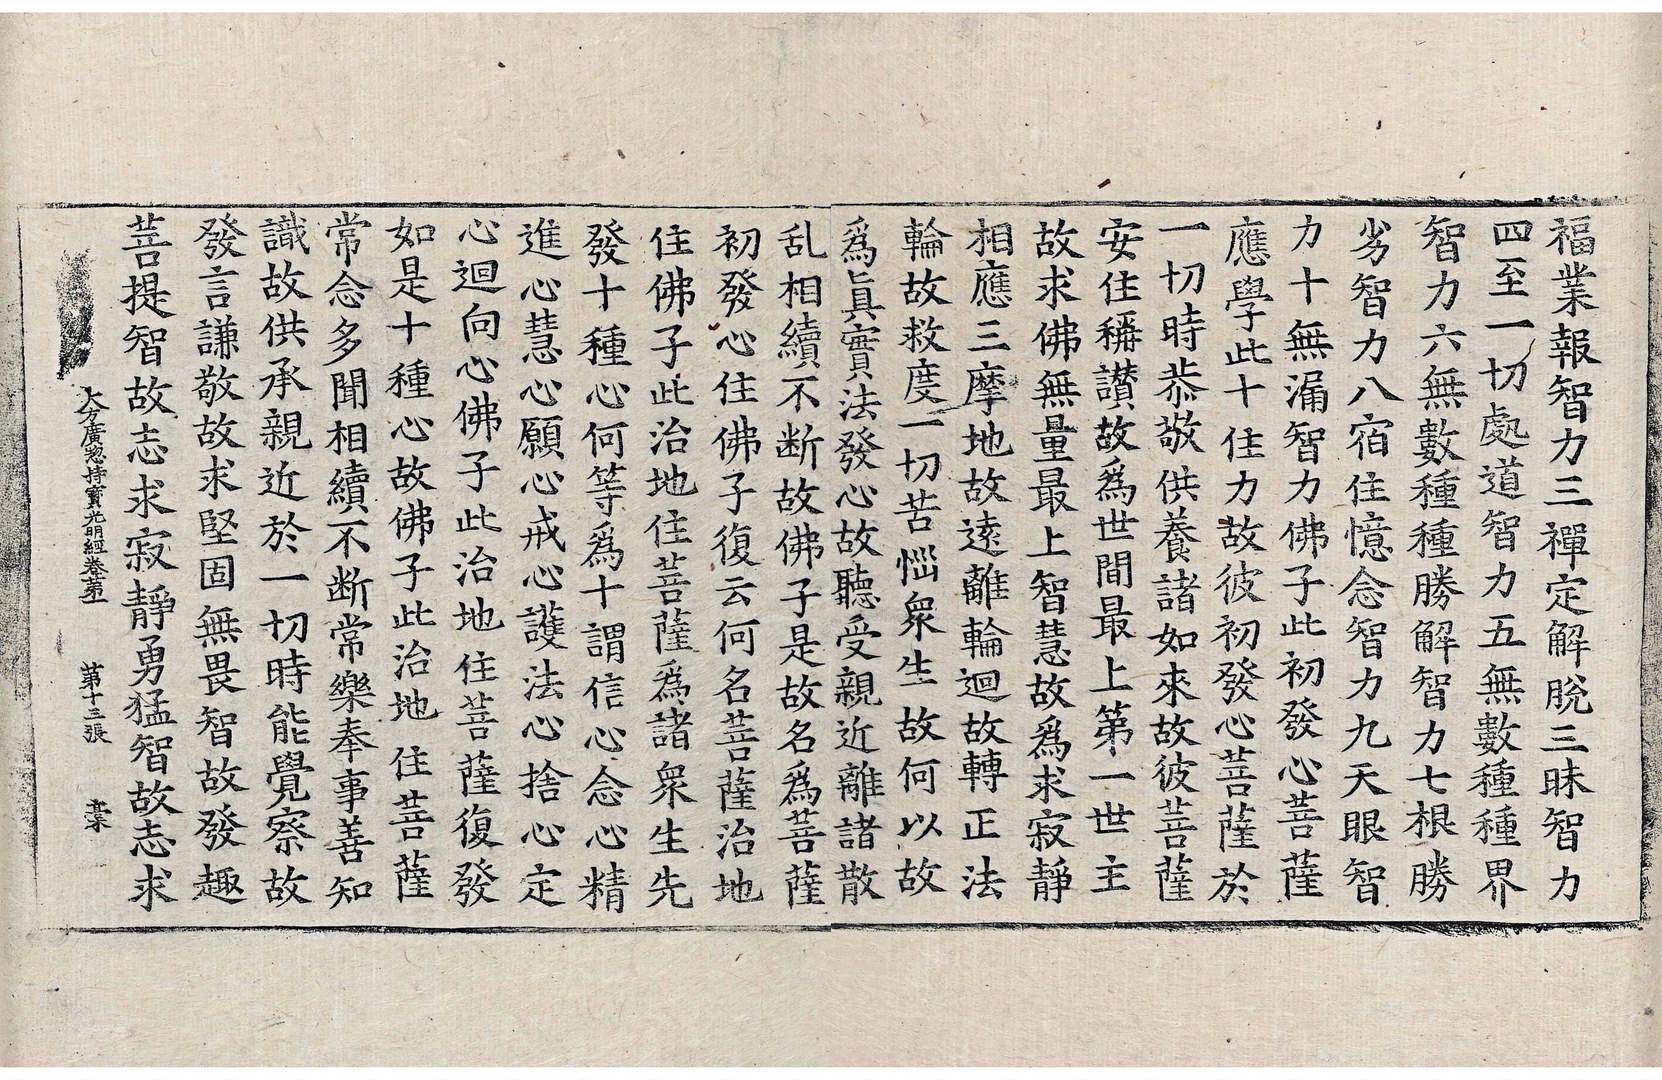 福業報智力三禪定解脫三昧智力
四至一切處道智力五無數種種界
智力六無數種種勝解智力七根勝
劣智力八宿住憶念智力九天眼智
力十無漏智力佛子此初發心菩薩
應學此十住力故彼初發心菩薩於
一切時恭敬供養諸如來故彼菩薩
安住稱讃故爲世間最上第一世主
故求佛無量最上智慧故爲求寂靜
相應三摩地故遠離輪迴故轉正法
輪故救度一切苦惱衆生故何以故
爲眞實法發心故聽受親近離諸散
乱相續不断故佛子是故名爲菩薩
初發心住佛子復云何名菩薩治地
住佛子此治地住菩薩爲諸衆生先
發十種心何等爲十謂信心念心精
進心慧心願心戒心護法心捨心定
心迴向心佛子此治地住菩薩復發
如是十種心故佛子此治地住菩薩
常念多聞相續不断常樂奉事善知
識故供承親近於一切時能覺察故
發言謙敬故求堅固無畏智故發趣
菩提智故志求寂靜勇猛智故志求
大方廣惣持寶光明經卷第一 第十三張